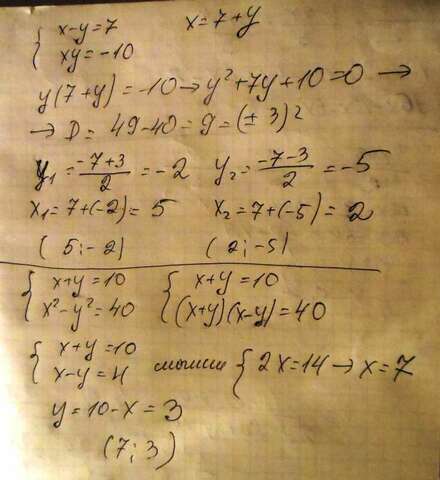 { x-y=7    x=7+y
{ xy=-10
y(7+y)=-10→y²+7y+10=0→
→ D= 49-40=9=(±3)²
y₁= (-7+3)/2 =-2    y₂= (-7-3)/2 =-5
x₁=7+(-2)=5    x₂=7+(-5)=2
(5;-2)    (2;-5)
{ x+y=10    { x+y=10
{ x²-y²=40    { (x+y)(x-y)=40
{ x+y=10
{ x-y=4    { 2x=14→x=7
y=10-x=3
(7;3)